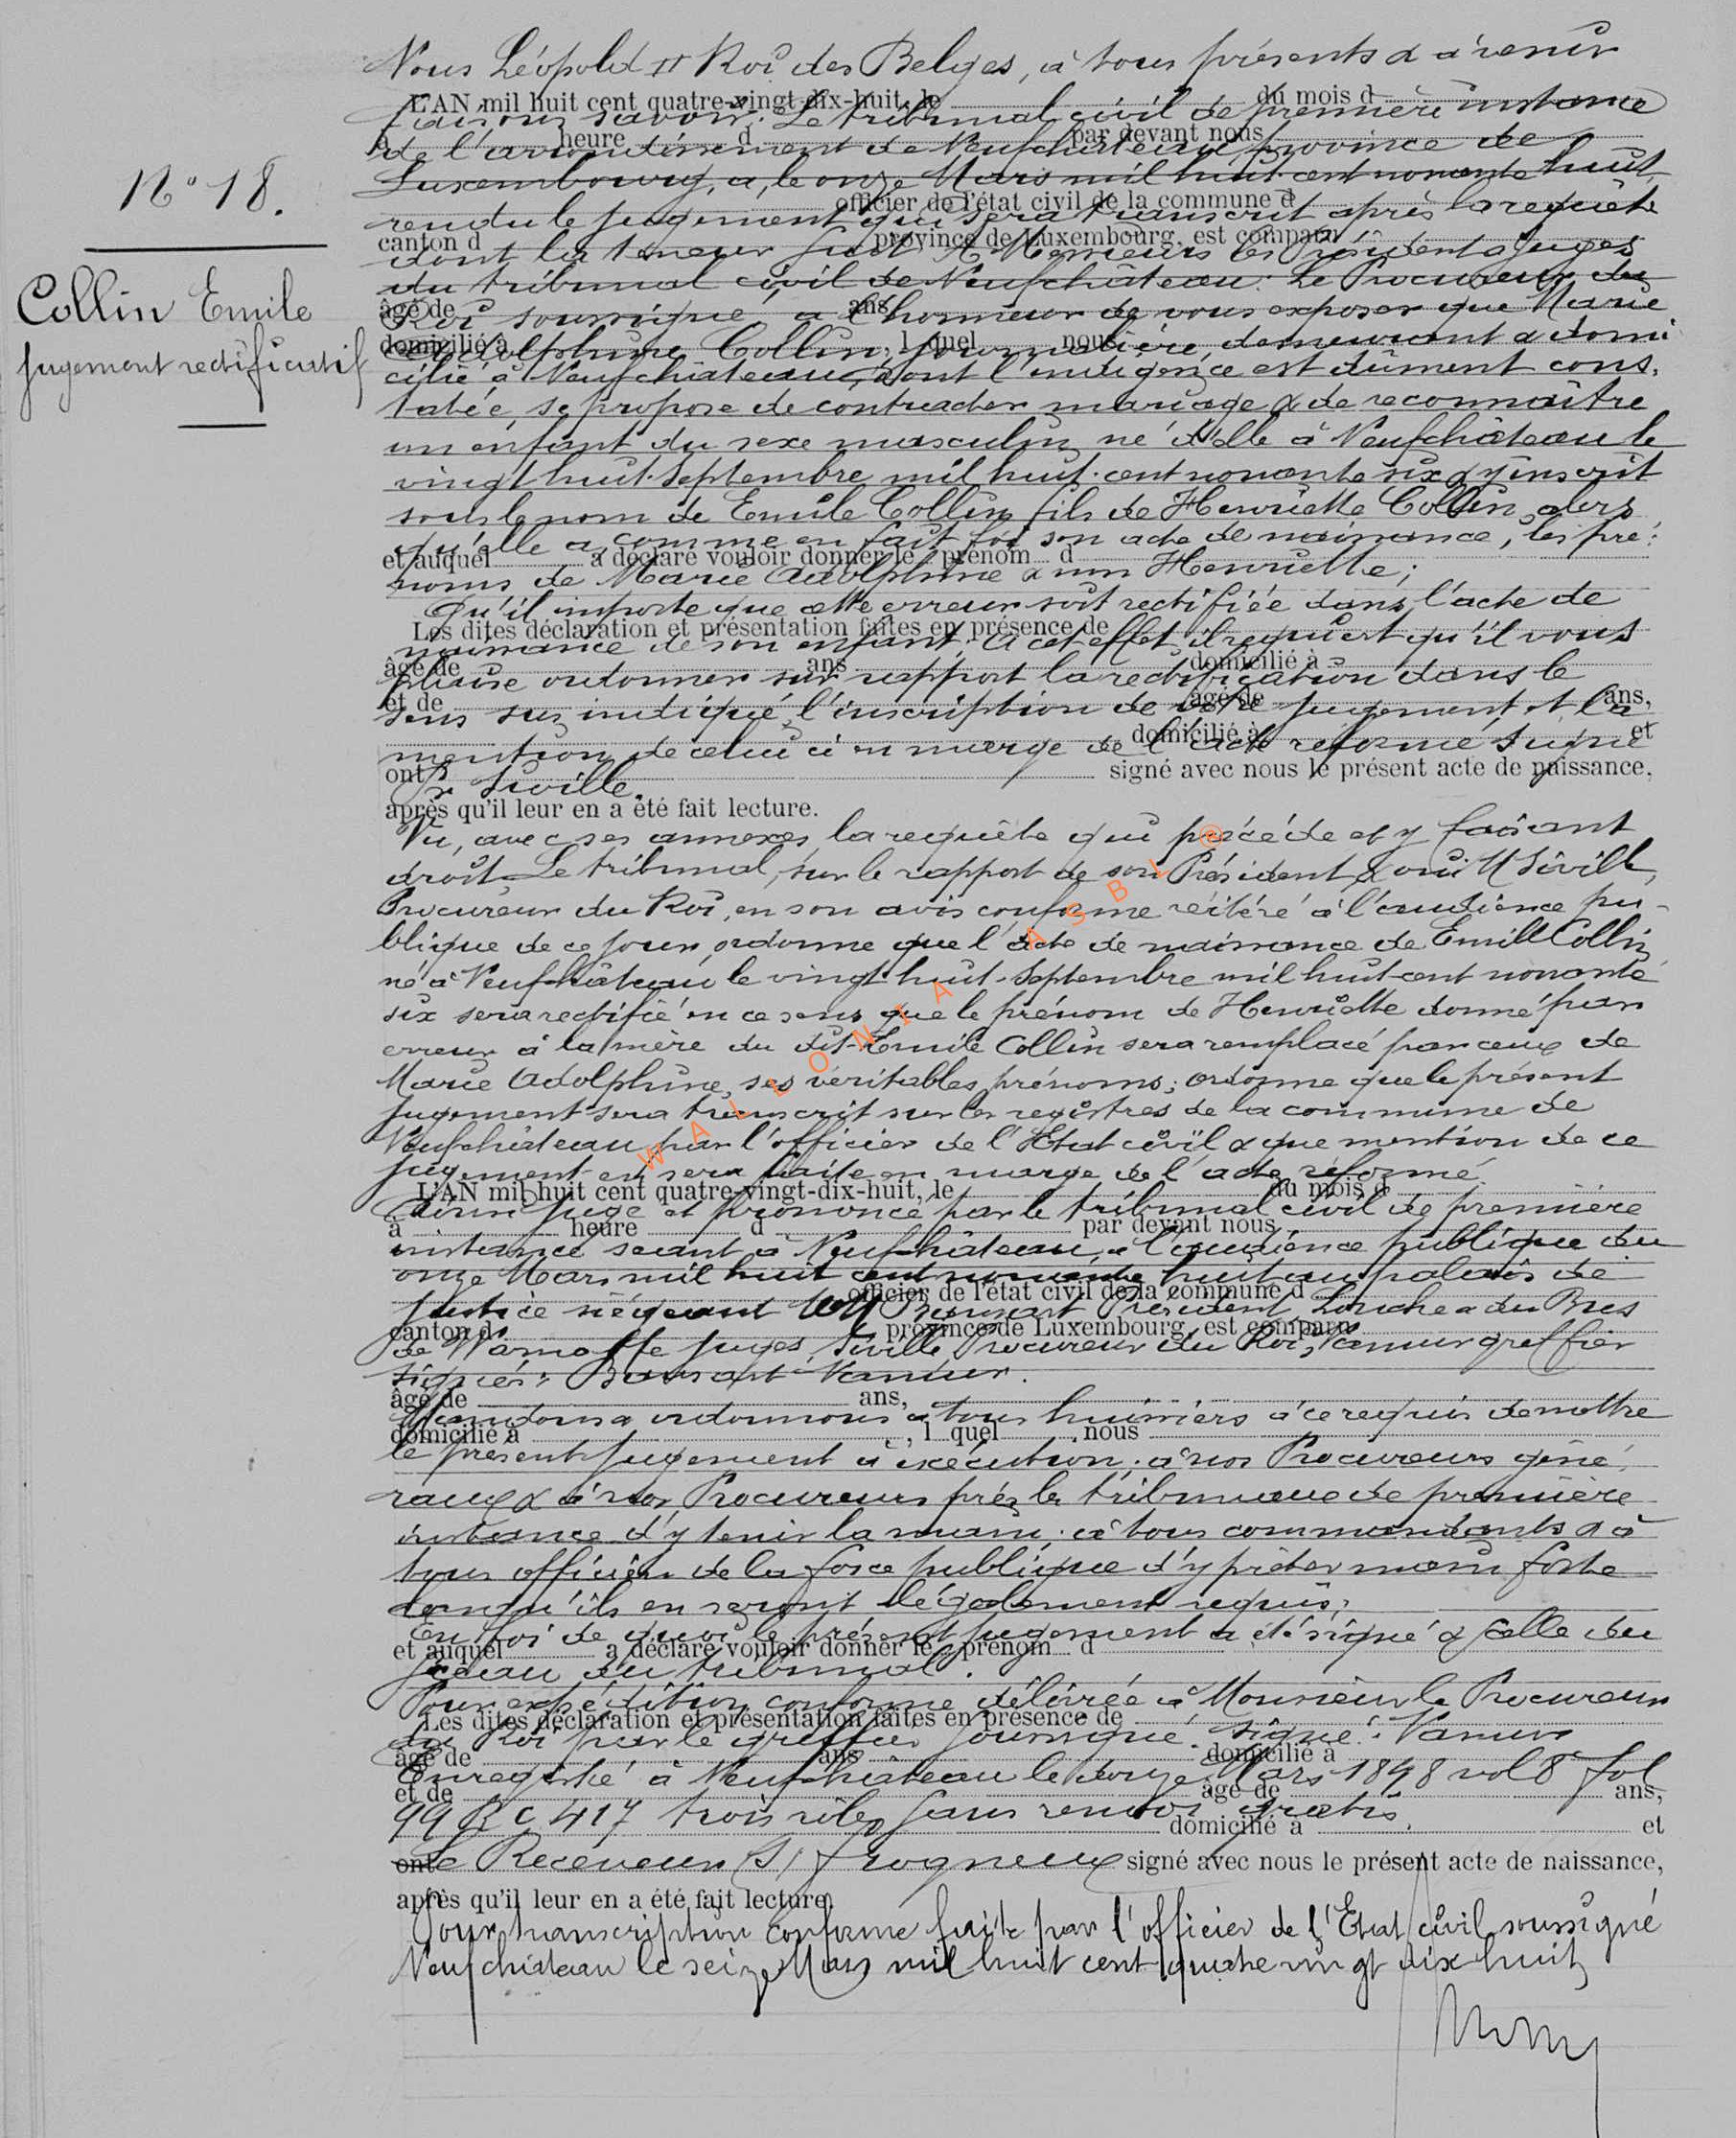 Nous Léopold II Roi des Belges, à tous présents & à venir
L'AN mil huit cent quatre-vingt-dix-huit, le du mois d
faisons savoir: Le tribunal civil de première instance
à heure d par devant nous
de l'arrondissement de Neufchâteau, province de
Luxembourg, a, le onze Mars mil huit cent nonante huit
officier de l'état civil de la commune d
rendu le jugement qui sera transcrit après la requête
canton d province de Luxembourg, est comparu
dont la teneur suit: A Messieurs les Président & juges
du tribunal civil de Neufchâteau. Le Procureur du
âgé de ans
Roi soussigné, a l'honneur de vous exposer que Marie
domicilié à , l quel nous
Adolphine Collin, journalière, demeurant & domi
cilié à Neufchâteau, dont l'indigence est dûment cons.
tatée, se propose de contracter mariage & de reconnaître
un enfant du sexe masculin né d'elle à Neufchâteau le
vingt huit Septembre mil huit cent nonante six & y inscrit
sous le nom de Emile Collin fils de Henriette Collin alors
qu'elle a, comme en fait foi son acte de naissance, les pré:
et auquel a déclaré vouloir donner le prénom d
noms de Marie Adolphine & non Henriette;
Qu'il importe que cette erreur soit rectifiée dans l'acte de
Les dites déclaration et présentation faites en présence de
naissance de son enfant. A cet effet, il requiert qu'il vous
âgé de ans domicilié à
plaise ordonner sur rapport la rectification dans le
et de âgé de ans,
sens sus indiqué, l'inscription de votre jugement et la
domicilié à et
mention de celui ci en marge de l'acte réformé signé
ont signé avec nous le présent acte de naissance,
Siville.
après qu'il leur en a été fait lecture.
Vu, avec ses annexes, la requête qui précède et y faisant
droit Le tribunal, sur le rapport de son Président & ouï M Siville,
Procureur du Roi, en son avis conforme réitéré à l'audience pu-
blique de ce jour, ordonne que l'acte de naissance de Emile Collin
né à Neufchâteau le vingt huit Septembre mil huit cent nonante
six sera rectifié en ce sens que le prénom de Henriette donné par
erreur à la mère du dit Emile Collin sera remplacé par ceux de
Marie Adolphine, ses véritables prénoms; ordonne que le présent
jugement sera transcrit sur les registres de la commune de
Neufchâteau par l'officier de l'Etat civil & que mention de ce
jugement en sera faite en marge de l'acte réformé.
L'AN mil huit cent quatre-vingt-dix-huit, le du mois d
Ainsi jugé et prononcé par le tribunal civil de première
à heure d par devant nous
instance séant à Neufchâteau, à l'audience publique du
onze Mars mil huit cent nonante huit au palais de
officier de l'état civil de la commune d
justice siégeant MM Président, Louche & du Bus
canton d province de Luxembourg, est comparu
de Warnaffe juges, Siville Procureur du Roi, Vanmer greffier
signés:
âgé de ans,
Mandons & ordonnons à tous huissiers à ce requis de mettre
domicilié à , l quel nous
le présent jugement à exécution; à nos Procureurs géné,
raux & à nos Procureurs près les tribunaux de première
instance d'y tenir la main; à tous commandants & à
tous officiers de la force publique d'y prêter main forte
lorsqu'ils en seront légalement requis;
En foi de quoi le présent jugement a été signé & scellé du
et auquel a déclaré vouloir donner le prénom d
sceau du tribunal.
Pour expédition conforme délivrée à Monsieur le Procureur
Les dites déclaration et présentation faites en présence de
du Roi par le greffier soussigné. signé:
âgé de ans domicilié à
Enregistré à Neufchâteau le douze Mars 1898 vol 8 fol
et de âgé de ans,
99 R C 417 trois rôles sans renvoi gratis.
domicilié à et
Le Receveur (s) Frogneux
ont signé avec nous le présent acte de naissance,
après qu'il leur en a été fait lecture.
Pour transcription conforme faite par l'officier de l'Etat civil soussigné
Neufchâteau le seize Mars mil huit cent quatre vingt dix huit
N° 18.
Collin Emile
jugement rectificatif
WALLONIA ASBL ®